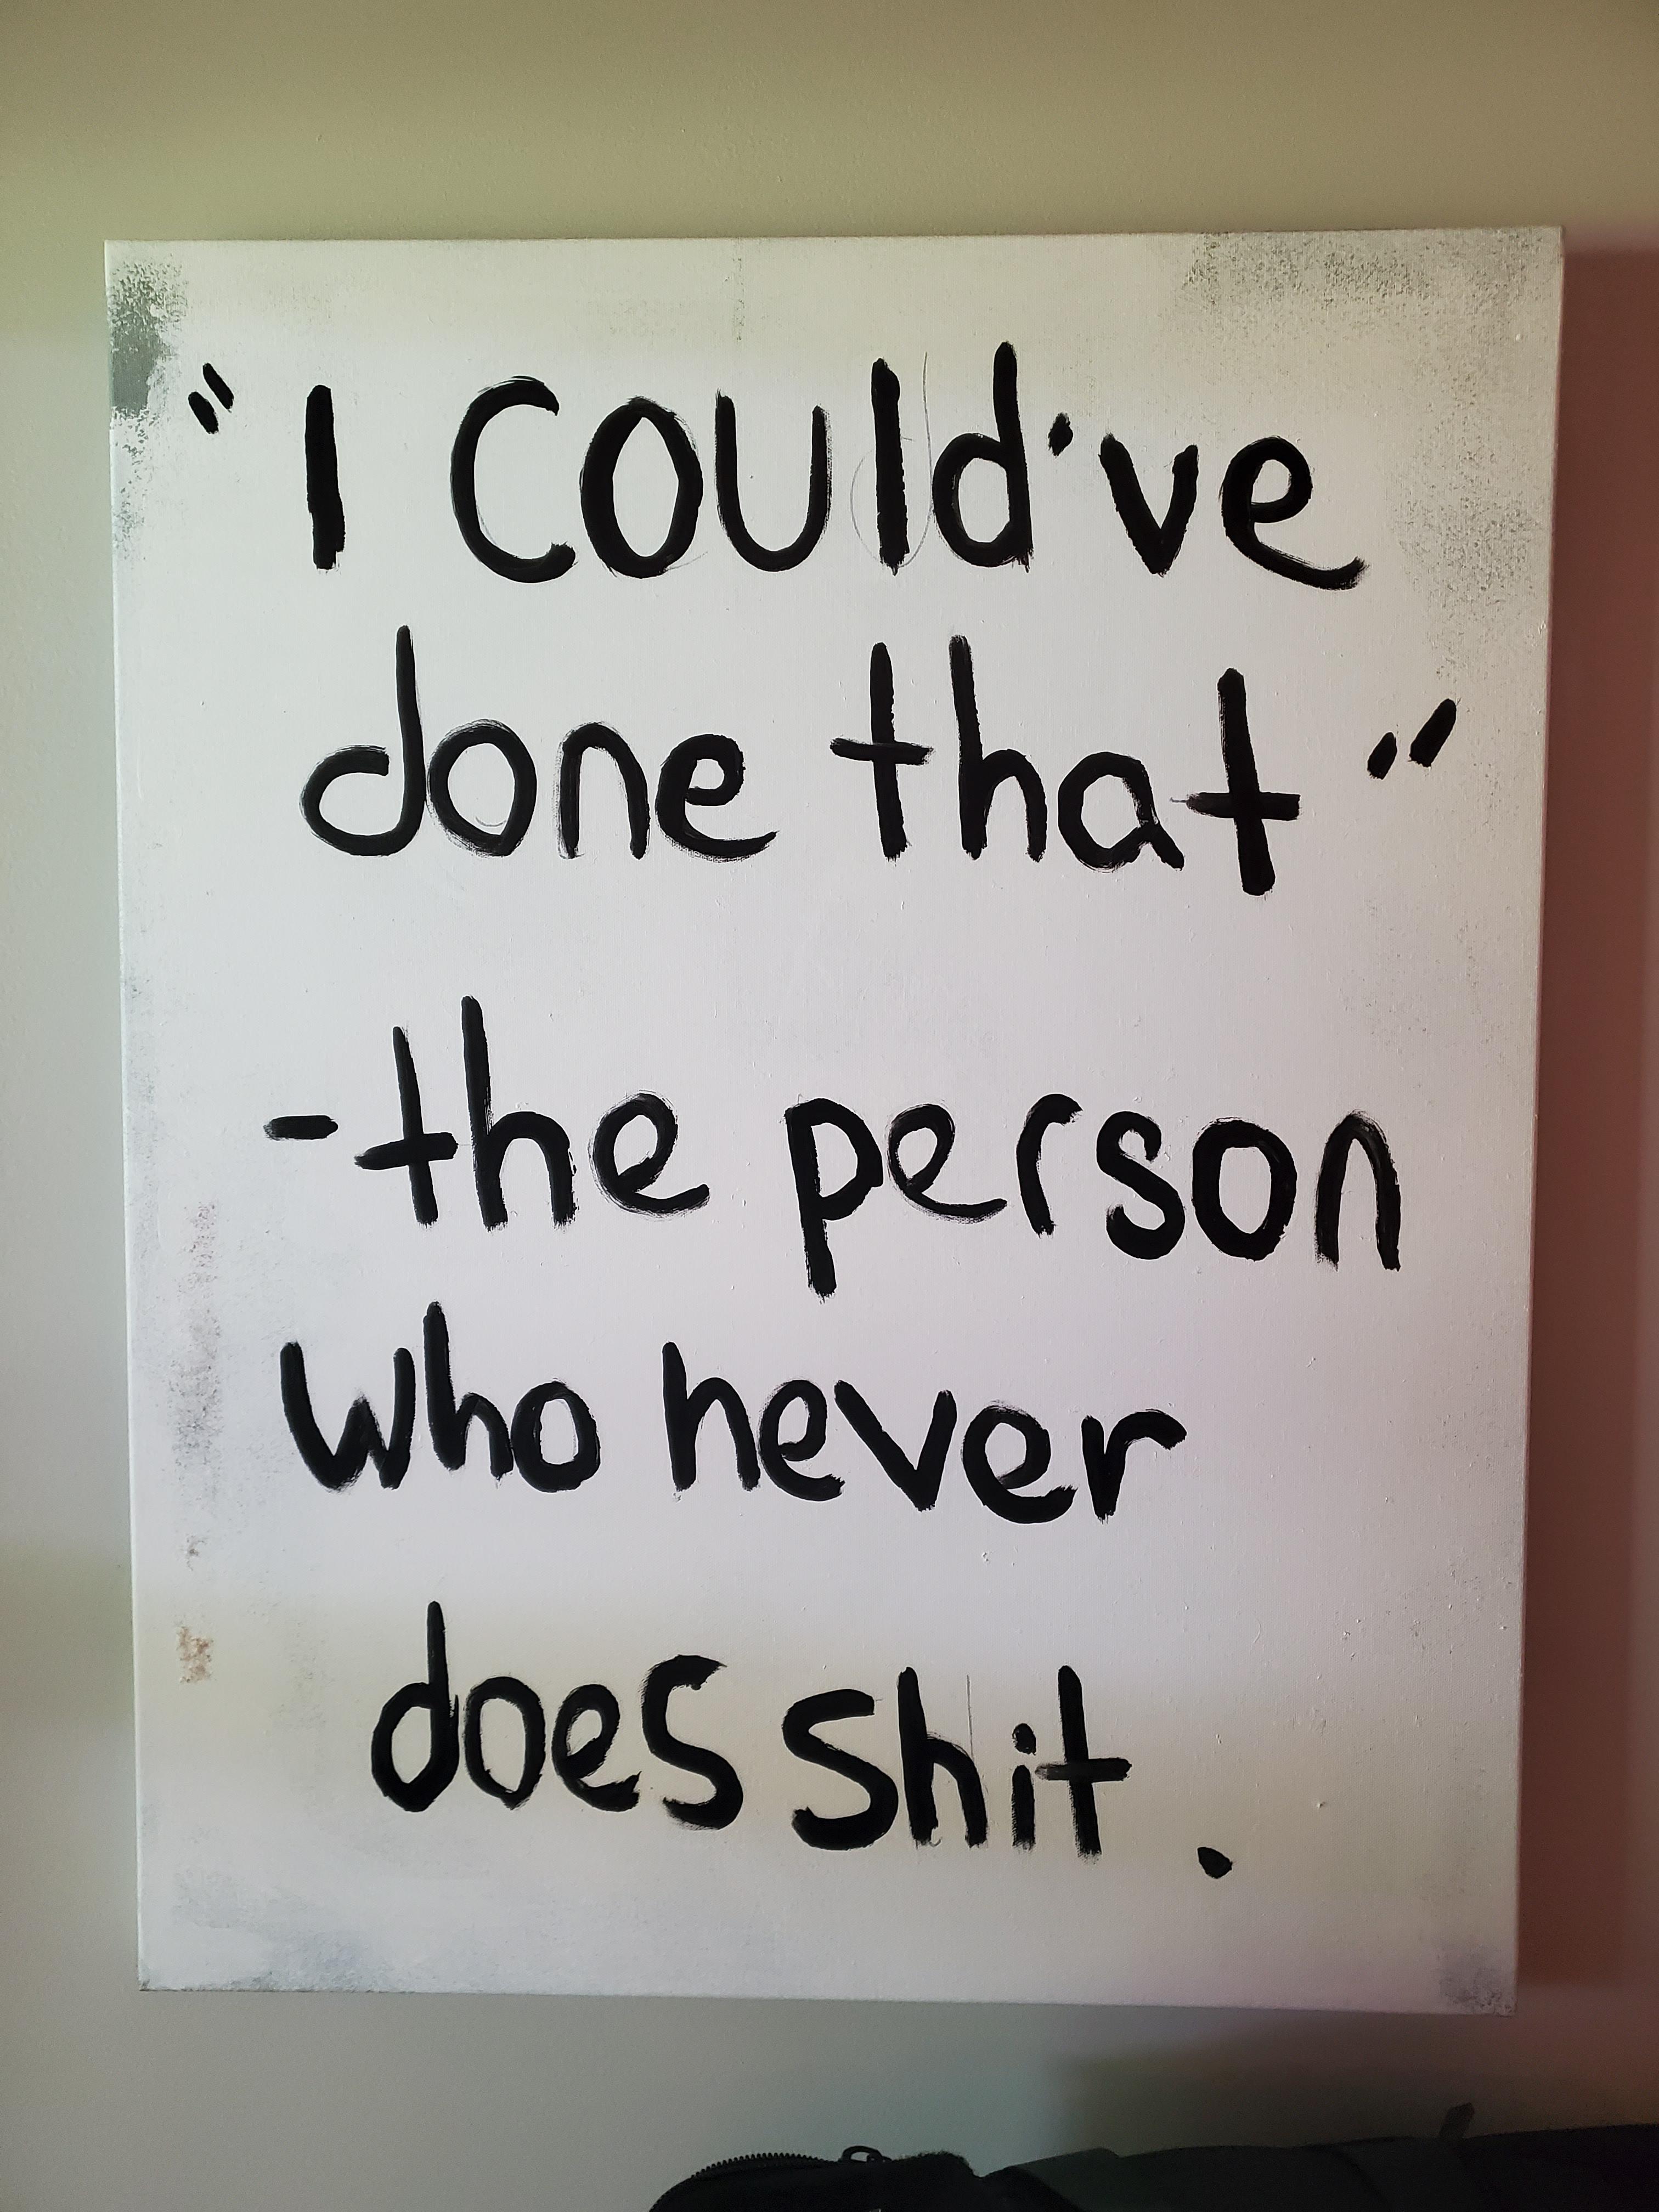 "I Could've
done that"
-the person
who never
does shit.